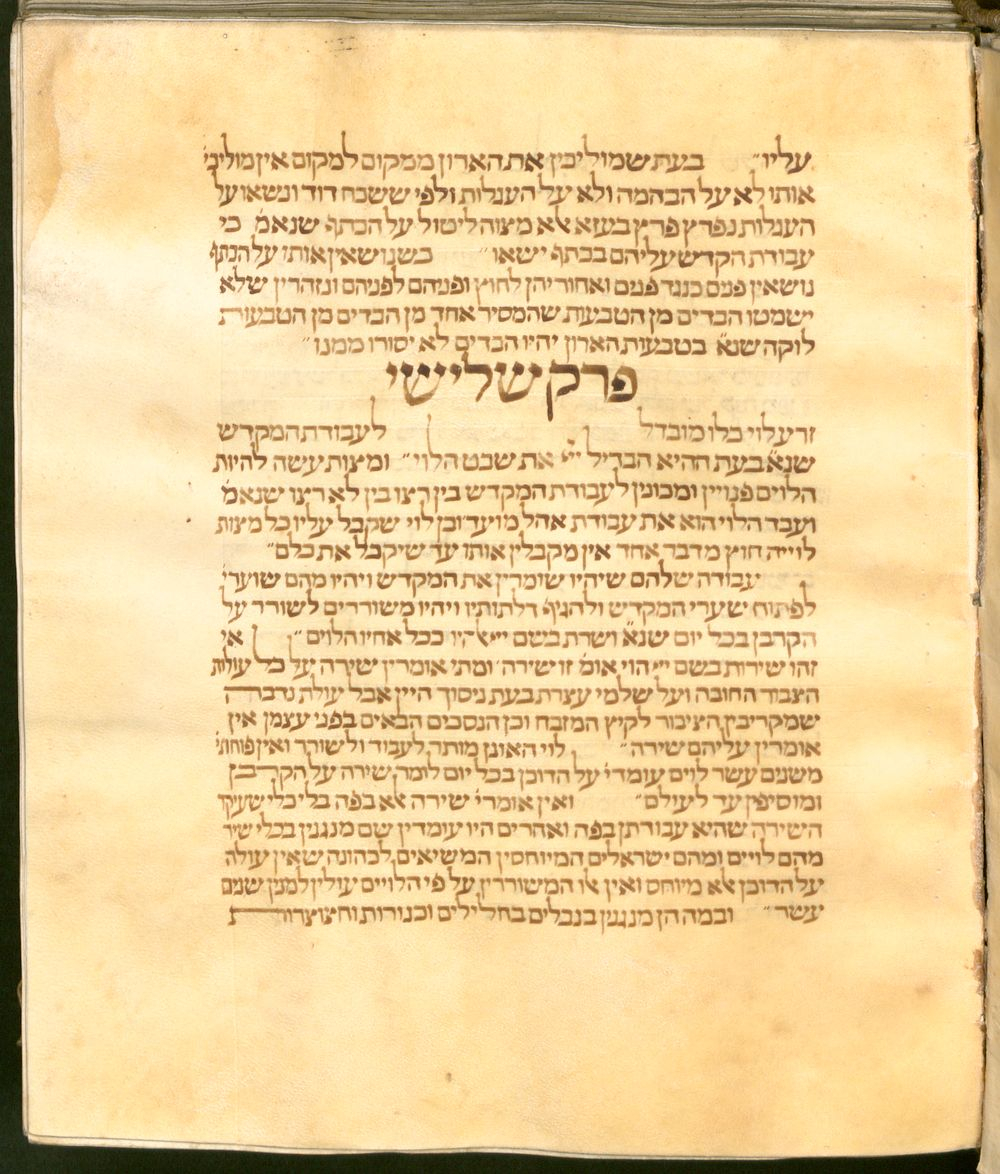 עליו״ בעת שמוליכין את הארון ממקום למקום אין מוליכי׳
אותו לא על הבהמה ולא על העגלות ולפי ששכח דוד ונשאו על
העגלות נפרץ פרץ בעזא אלא מצוה ליטול על הכתף שנאמ׳ כי
עבודת הקדש עליהם בכתף ישאו״ בשנושאין אותו על הכתף
נושאין פנים כנגד פנים ואחוריהן לחוץ ופניהם לפניהם ונזהרין שלא
ישמטו הבדים מן הטבעות שהמסיר אחד מן הבדים מן הטבעות
לוקה שנא׳ בטבעות הארון יהיו הבדים לא יסורו ממנו״
פרק שלישי
זרע לוי כלו מובדל לעבודת המקדש
שנא׳ בעת ההיא הבדיל ייי את שבט הלוי״ ומצות עשה להיות
הלוים פנויין ומכונין לעבודת המקדש בין רצו בין לא רצו שנאמ׳
ועבד הלוי הוא את עבודת אהל מועד׳ ובן לוי שקבל עליו כל מצות
לוייה חוץ מדבר אחד אין מקבלין אותו עד שיקבל את כלם״
עבודה שלהם שיהיו שומרין את המקדש ויהיו מהם שוערי׳
לפתוח שערי המקדש ולהגיף דלתותיו ויהיו משוררים לשורר על
הקרבן בכל יום שנא׳ ושרת בשם ייי אלהיו ככל אחיו הלוים״ אי
זהו שירות בשם ייי הוי אומ׳ זו שירה׳ ומתי אומרין שירה על כל עולות
הצבור החובה ועל שלמי עצרת בעת ניסוך היין אבל עולת נדבה
שמקריבין הציבור לקיץ המזבח וכן הנסכים הבאים בפני עצמן אין
אומרין עליהם שירה״ לוי האונן מותר לעבוד ולשורר ואין פוחתי׳
משנים עשר לוים עומדי׳ על הדוכן בכל יום לומר שירה על הקרבן
ומוסיפין עד לעולם״ ואין אומרי׳ שירה אלא בפה בלי כלי שעיקר
השירה שהיא עבודתן בפה ואחרים היו עומדין שם מנגנין בכלי שיר
מהם לויים ומהם ישראלים המיוחסין המשיאים לכהונה שאין עולה
על הדוכן אלא מיוחס ואין אלו המשוררין על פי הלויים עולין למנין שנים
עשר״ ובמה הן מנגנין בנבלים בחלילים וכנורות וחצוצרות